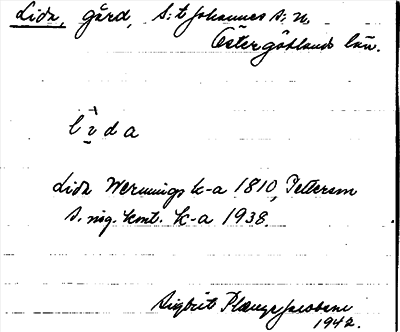 Lida, gård, S:t Johannes s:n
Östergötlands län.
l i d a
Lida Wermings k-a 1810, Petterson
s. reg. kont. k-a 1938.
Sigbrit Plænge Jacobson
1942.